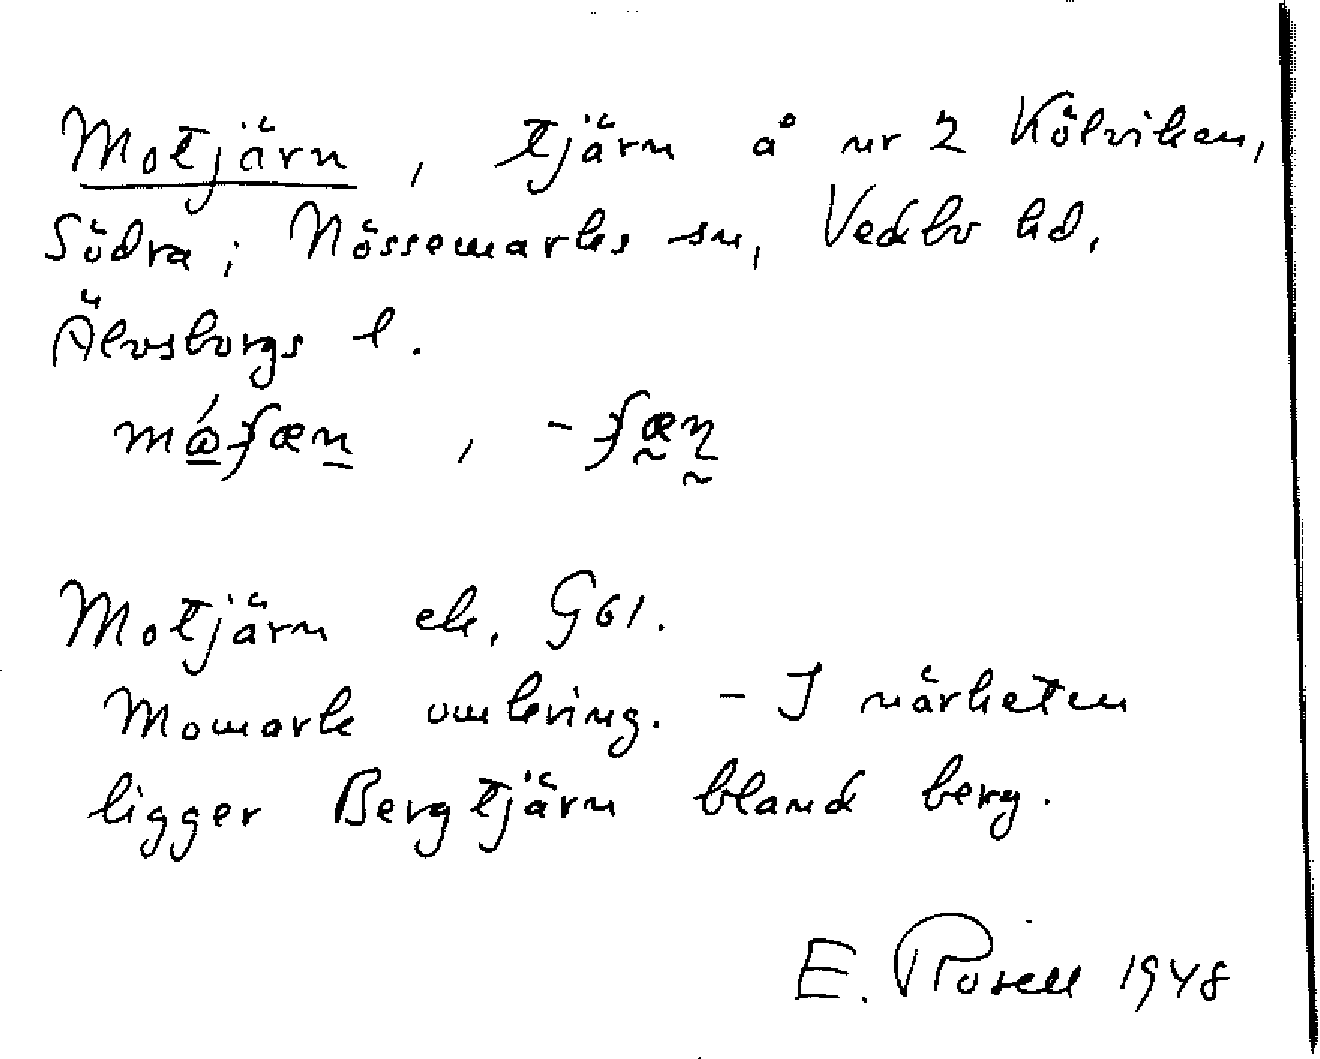 Motjärn, tjärn å nr 2 Kölviken,
Södra; Nössemarks sn, Vedbo hd,
Älvsborgs l.
Motjärn ek. G61.
Momark omkring. - I närheten
ligger Bergtjärn bland berg.
E. Rosell 1948